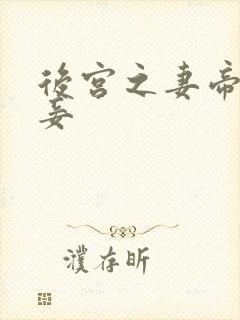 後宮之妻帝
妾
濮存昕